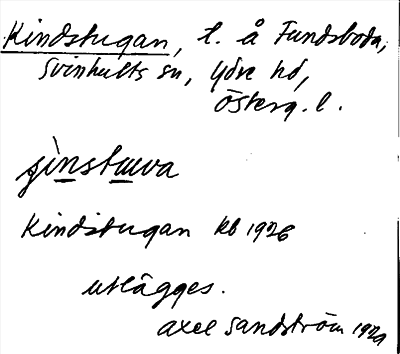 Kindstugan, t. å Fundsboda,
Svinhults sn, Ydre hd,
Österg. l.
jìnstuwa
Kindstugan kb 1926
utlägges.
Axel Sandström 1929